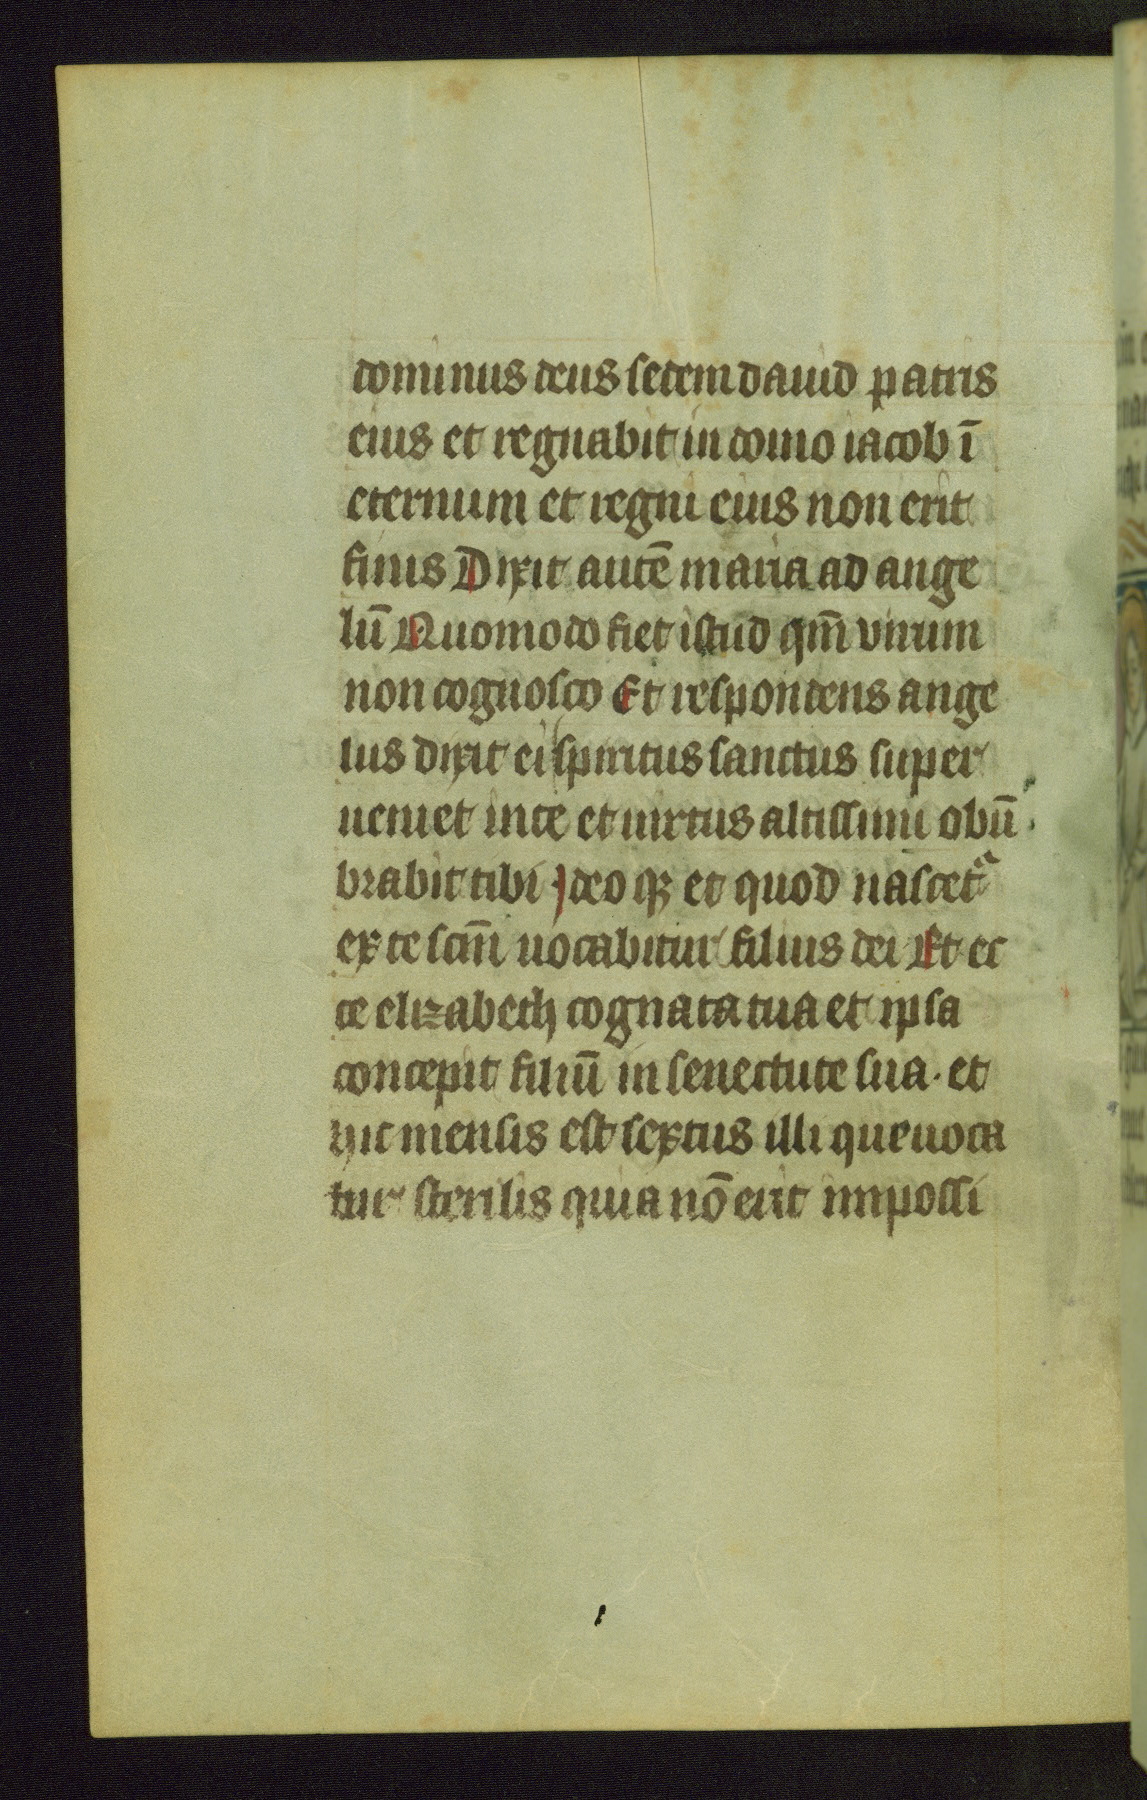 dominus deus sedem dauid patris
eius et regnabit in domo iacob ī
eternum et regni eius non erit
finis Dixit autē maria ad ange
lū Quomodo fiet istud qm̄ virum
non cognosco Et respondens ange
lus dixit ei spiritus sanctus super
ueniet in te et uirtus altissimi obū
brabit tibi Ideoqꝫ et quod nascetᵃ
ex te scm̄ uocabitur filius dei Et ec
ce elizabeth cognata tua et ipsa
concepit filiū in senectute sua· et
hic mensis est sextus illi que uoca
tur sterilis quia nō erit impossi